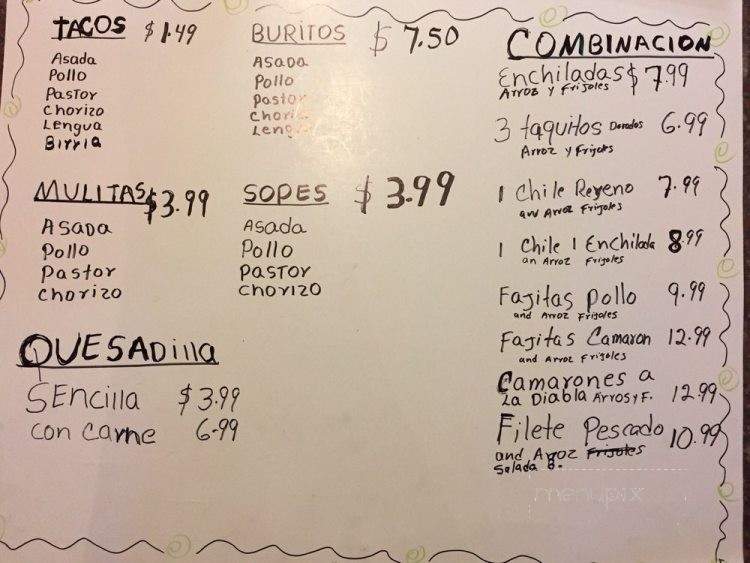 TACOS $1.49
Asada
Pollo
Pastor
Chorizo
Lengua
Birria
BURITOS $7.50
ASADA
Pollo
Pastor
Chori
Lengua
MULITAS $3.99
ASADA
Pollo
Pastor
Chorizo
SOPES $3.99
Asada
Pollo
PASTOR
CHORIZO
QUESADilla
SEncilla $3.99
con carne 6.99
COMBINACION
Enchiladas $7.99
Arroz y Frijoles
3 taquitos Dorados 6.99
Arroz y Frijoles
1 Chile Reyeno 7.99
and Arroz Frijoles
1 Chile 1 Enchilada 8.99
an Arroz Frijoles
Fajitas pollo 9.99
and Arroz Frijoles
Fajitas Camaron 12.99
and Arroz Frijoles
Camarones a
La Diabla Arros y F. 12.99
Filete Pescado 10.99
and Arroz Frijoles
Salada
menupix